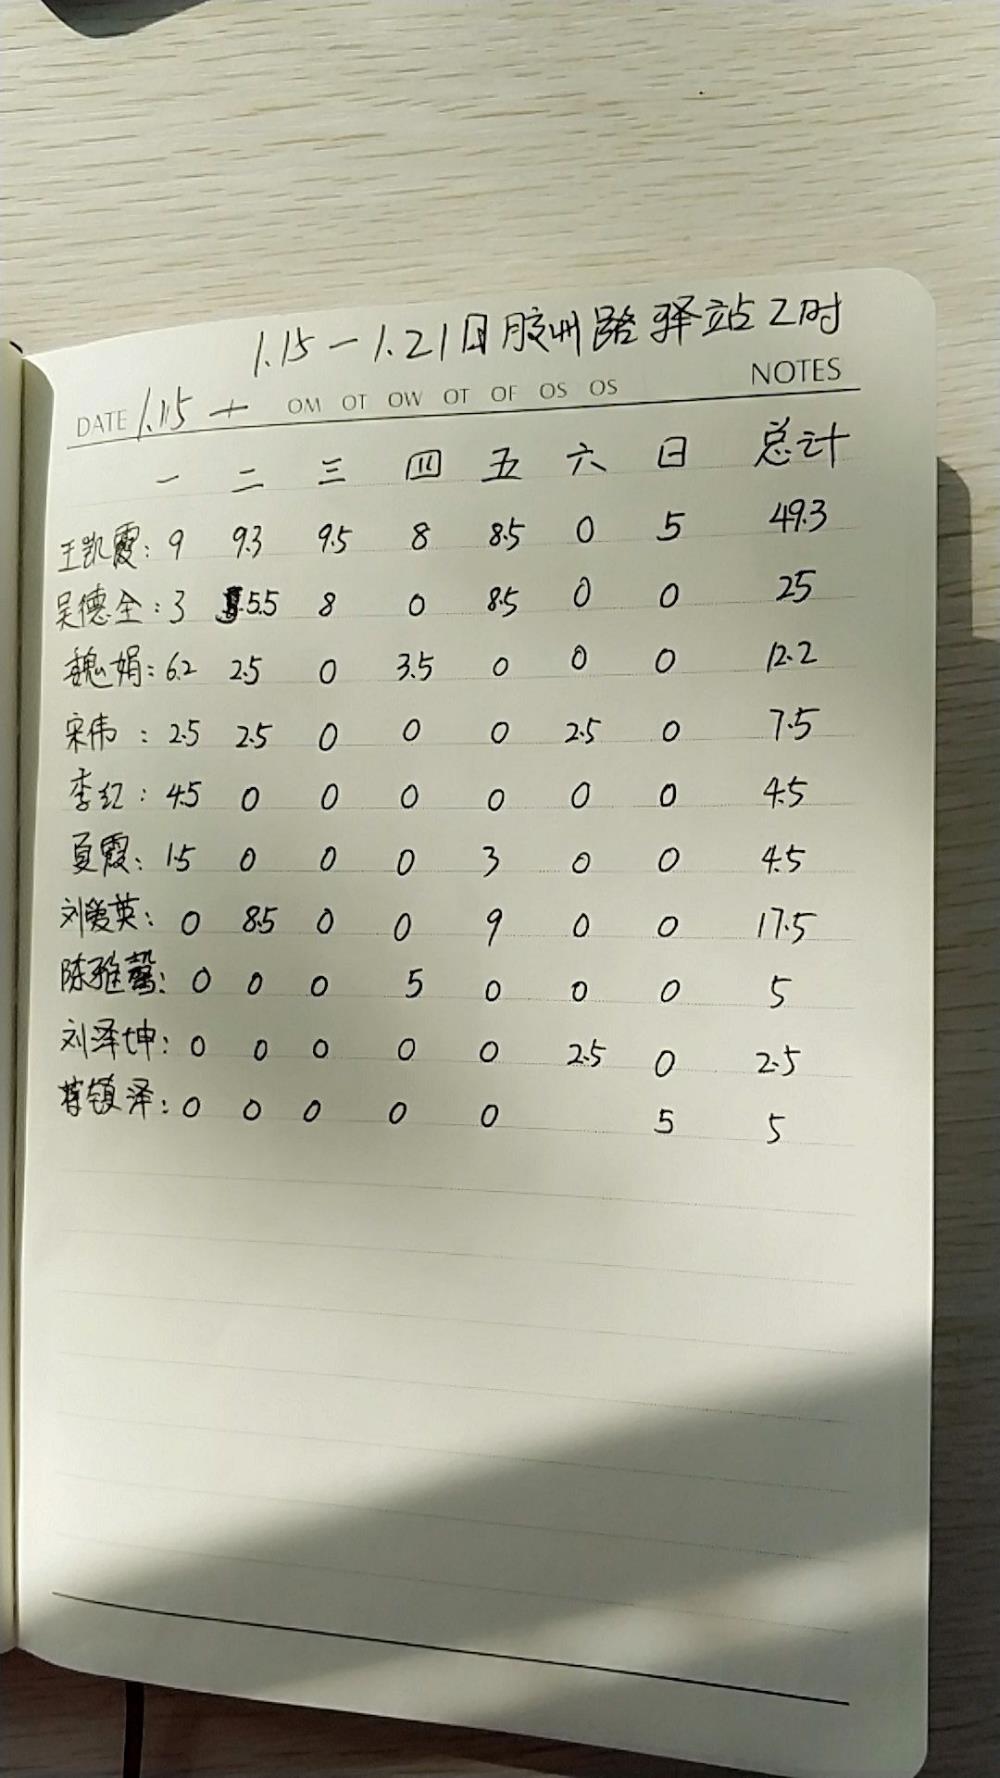 1.15-1.21日胶州路驿站工时
DATE 1.15 OM OT OW OT OF OS OS NOTES
一 二 三 四 五 六 日 总计
王凯霞: 9 9.3 9.5 8 8.5 0 5 49.3
吴德全: 3 5.5 8 0 8.5 0 0 25
魏娟: 6.2 2.5 0 3.5 0 0 0 12.2
宋伟: 2.5 2.5 0 0 0 2.5 0 7.5
李红: 4.5 0 0 0 0 0 0 4.5
夏霞: 1.5 0 0 0 3 0 0 4.5
刘爱英: 0 8.5 0 0 9 0 0 17.5
陈雅馨: 0 0 0 5 0 0 0 5
刘泽坤: 0 0 0 0 0 2.5 0 2.5
镇泽: 0 0 0 0 0 5 5